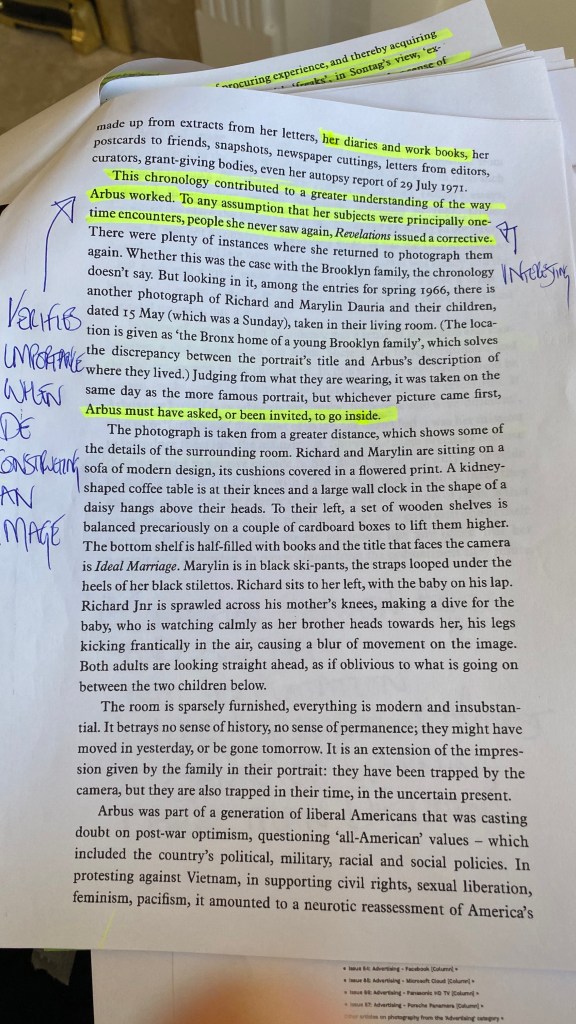 procuring experience, and thereby acquiring
'freaks', in Sontag's view, 'ex-
sense of
made up from extracts from her letters, her diaries and work books, her
postcards to friends, snapshots, newspaper cuttings, letters from editors,
curators, grant-giving bodies, even her autopsy report of 29 July 1971.
This chronology contributed to a greater understanding of the way
Arbus worked. To any assumption that her subjects were principally one-
time encounters, people she never saw again, Revelations issued a corrective.
There were plenty of instances where she returned to photograph them
again. Whether this was the case with the Brooklyn family, the chronology
doesn't say. But looking in it, among the entries for spring 1966, there is
another photograph of Richard and Marylin Dauria and their children,
dated 15 May (which was a Sunday), taken in their living room. (The loca-
tion is given as 'the Bronx home of a young Brooklyn family', which solves
the discrepancy between the portrait's title and Arbus's description of
where they lived.) Judging from what they are wearing, it was taken on the
same day as the more famous portrait, but whichever picture came first,
Arbus must have asked, or been invited, to go inside.
The photograph is taken from a greater distance, which shows some of
the details of the surrounding room. Richard and Marylin are sitting on a
sofa of modern design, its cushions covered in a flowered print. A kidney-
shaped coffee table is at their knees and a large wall clock in the shape of a
daisy hangs above their heads. To their left, a set of wooden shelves is
balanced precariously on a couple of cardboard boxes to lift them higher.
The bottom shelf is half-filled with books and the title that faces the camera
is Ideal Marriage. Marylin is in black ski-pants, the straps looped under the
heels of her black stilettos. Richard sits to her left, with the baby on his lap.
Richard Jnr is sprawled across his mother's knees, making a dive for the
baby, who is watching calmly as her brother heads towards her, his legs
kicking frantically in the air, causing a blur of movement on the image.
Both adults are looking straight ahead, as if oblivious to what is going on
between the two children below.
The room is sparsely furnished, everything is modern and insubstan-
tial. It betrays no sense of history, no sense of permanence; they might have
moved in yesterday, or be gone tomorrow. It is an extension of the impres-
sion given by the family in their portrait: they have been trapped by the
camera, but they are also trapped in their time, in the uncertain present.
Arbus was part of a generation of liberal Americans that was casting
doubt on post-war optimism, questioning 'all-American' values – which
included the country's political, military, racial and social policies. In
protesting against Vietnam, in supporting civil rights, sexual liberation,
feminism, pacifism, it amounted to a neurotic reassessment of America's
VERIFIES
IMPORTANCE
WHEN
DE
CONSTRUCTING
AN
IMAGE
INTERESTING
Issue 54: Advertising – Facebook [Column]
Advertising – Microsoft Cloud [Column]
Advertising – Panasonic HD TV [Column]
Issue 57: Advertising – Porsche Panamera [Column]
articles on photography from the 'Advertising' category